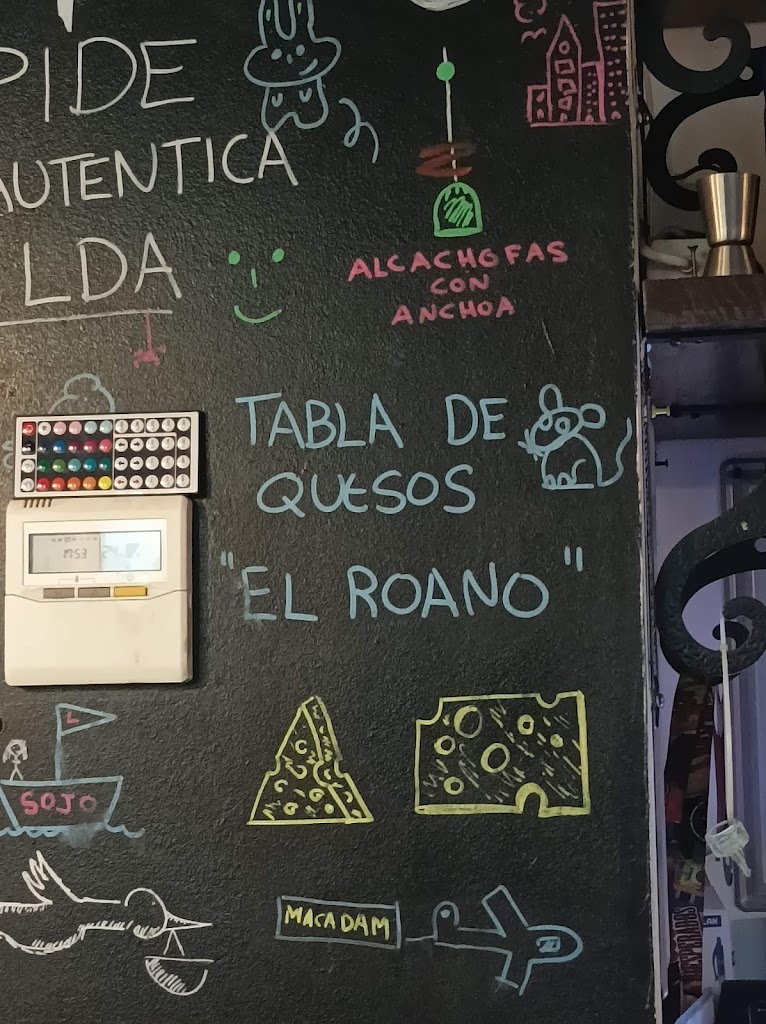 PIDE
AUTENTICA
LDA
ALCACHOFAS
CON
ANCHOA
TABLA DE
QUESOS
"EL ROANO"
17:53
L
SOJO
MACADAM
DESPERADOS